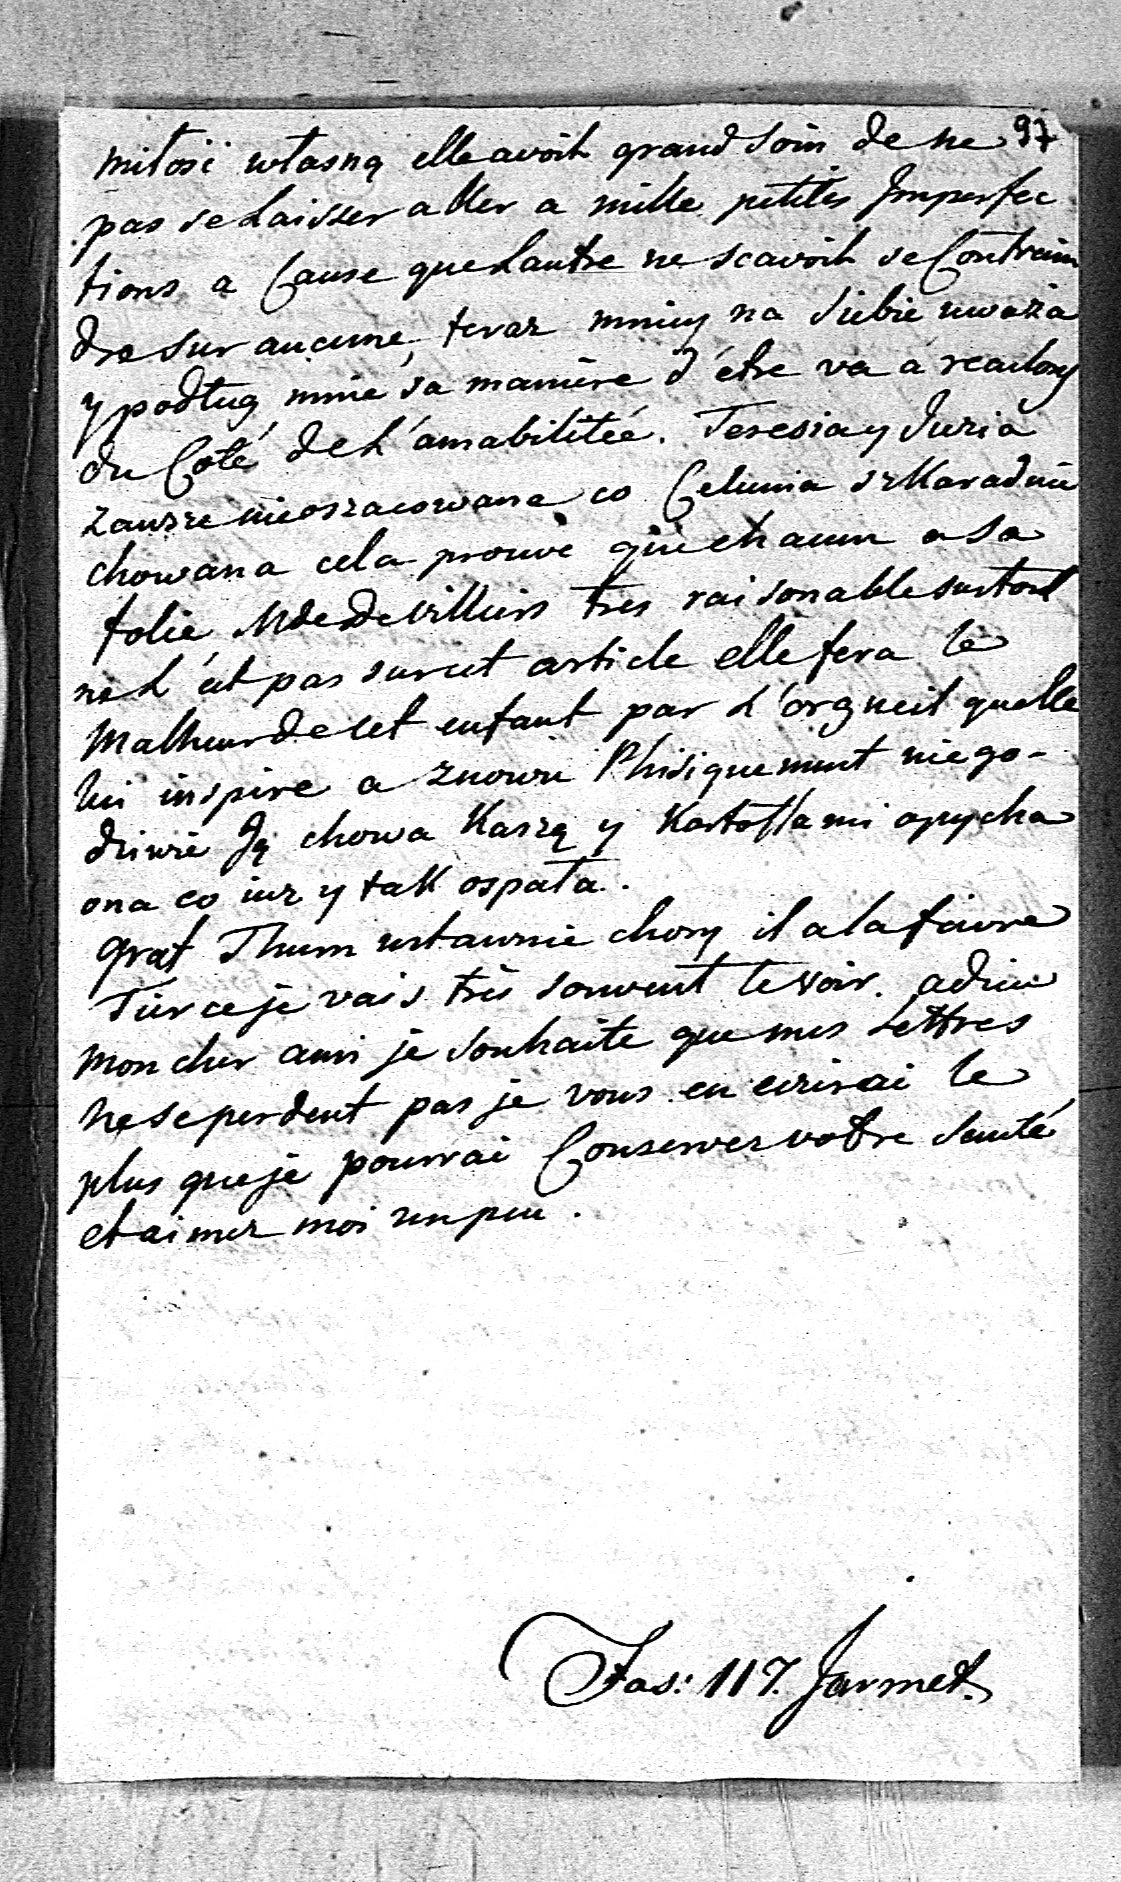 97
miłość własną elle avoit grand soin de ne
pas se Laisser aller a mille petites Imperfec
tions a Cause que Lautre ne scavoit se Contrain
dre sur aucune, teraz mniey na siebie uważa
y podług mnie sa manière d'étre va à reculons
du Coté de L'amabilitée. Teresia y Juzia
zawsze nieoszacowane co Celunia szkaradnie
chowana cela prouve que chacun a sa
folie, Mde de Villiers tres raisonable surtout
ne L'est pas sur cet article elle fera le
Malheur de cet enfant par L'orgueil quelle
lui inspire a znowu Phisiquement niego-
dziwie Ją chowa Kaszą y Kartoflami opycha
ona co iuz y tak ospała.
Graf Thurn ustawnie chory il a la fievre
Tierce je vais très souvent le voir. adieu
Mon cher ami je souhaite que mes Lettres
ne se perdent pas je vous en ecrirai le
plus que je pourrai Conservez votre Santé
et aimez moi un peu.
Fas: 117. Jarmet.